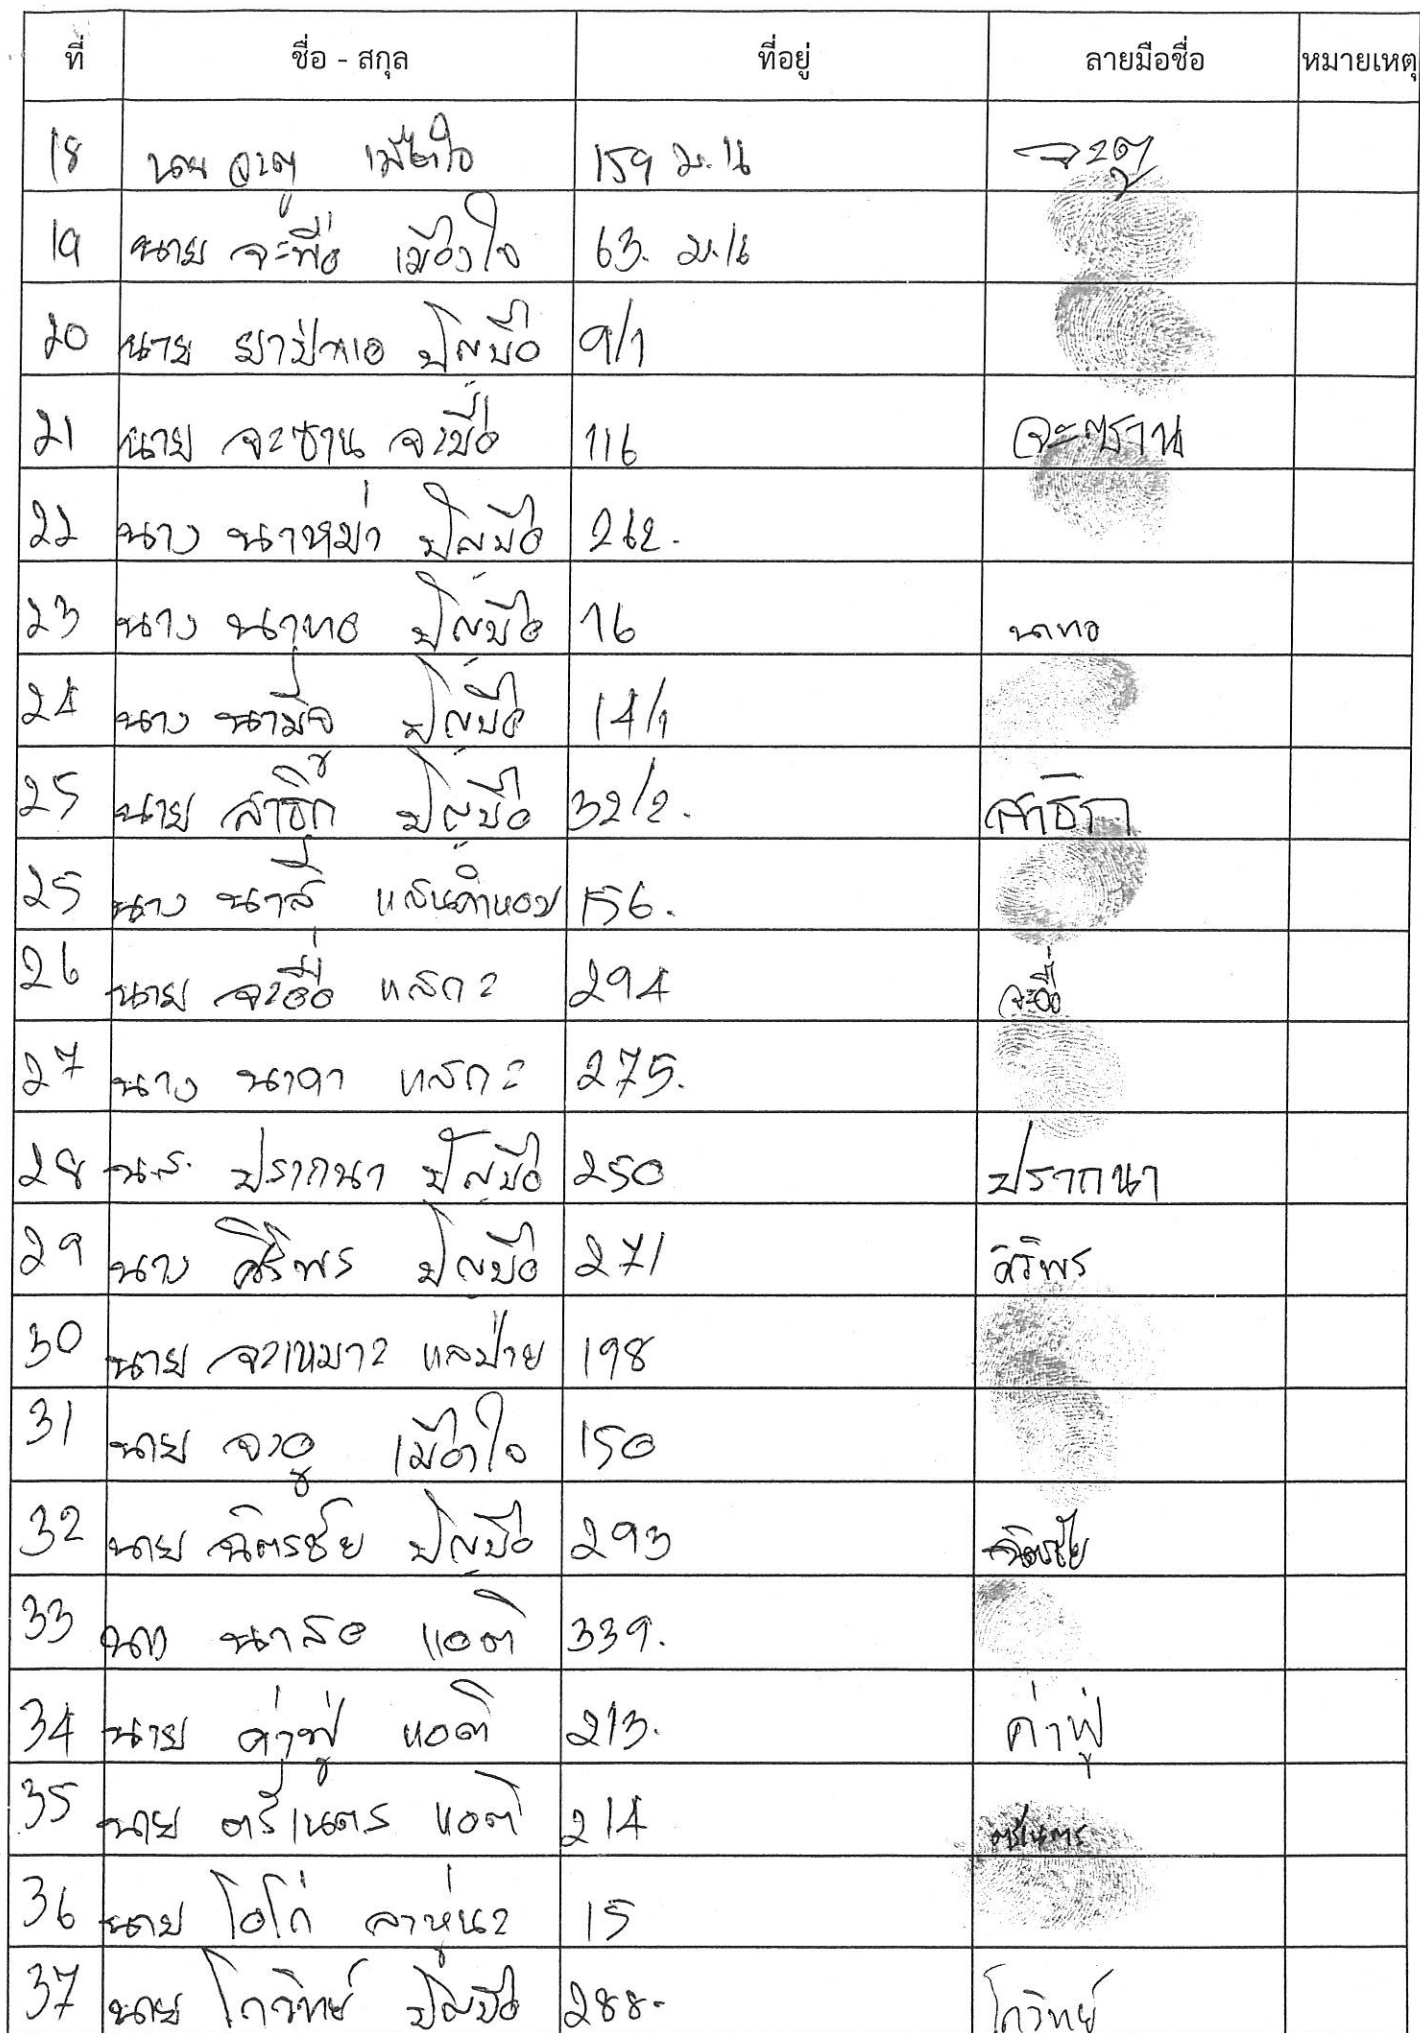 ที่ ชื่อ - สกุล ที่อยู่ ลายมือชื่อ หมายเหตุ
18 นาย จะตู เมืองใจ 159 ม.11 จะตู
19 นาย จะพือ เมืองใจ 63. ม.11
20 นาย ยาป่าแอ ปู่สบือ 9/1
21 นาย จะซาน จะบือ 116 จะซาน
22 นาง นาหม่า 262.
23 นาง นาทอ 16 นาทอ
24 นาง นามือ 14/1
25 นาย สาธิก 32/2. สาธิก
25 นาง นาสี แสนคำหอม 156.
26 นาย จะอื่อ แสกะ 294 จะอื่อ
27 นาง นาดา แสกะ 275.
28 น.ส. ปรากนา 250 ปรากนา
29 นาง ศิริพร 271 ศิริพร
30 นาย จะเหมาะ แลป่าย 198
31 นาย จะอู เมืองใจ 150
32 นาย ฉิตรชัย 293 ฉิตรชัย
33 นาง นาสอ แอติ 339.
34 นาย ค่าฟู่ แอติ 213. ค่าฟู่
35 นาย ตรีเนตร แอติ 214 ตรีเนตร
36 นาย โอโก่ ลาหู่นะ 15
37 นาย โกวิทย์ 288. โกวิทย์